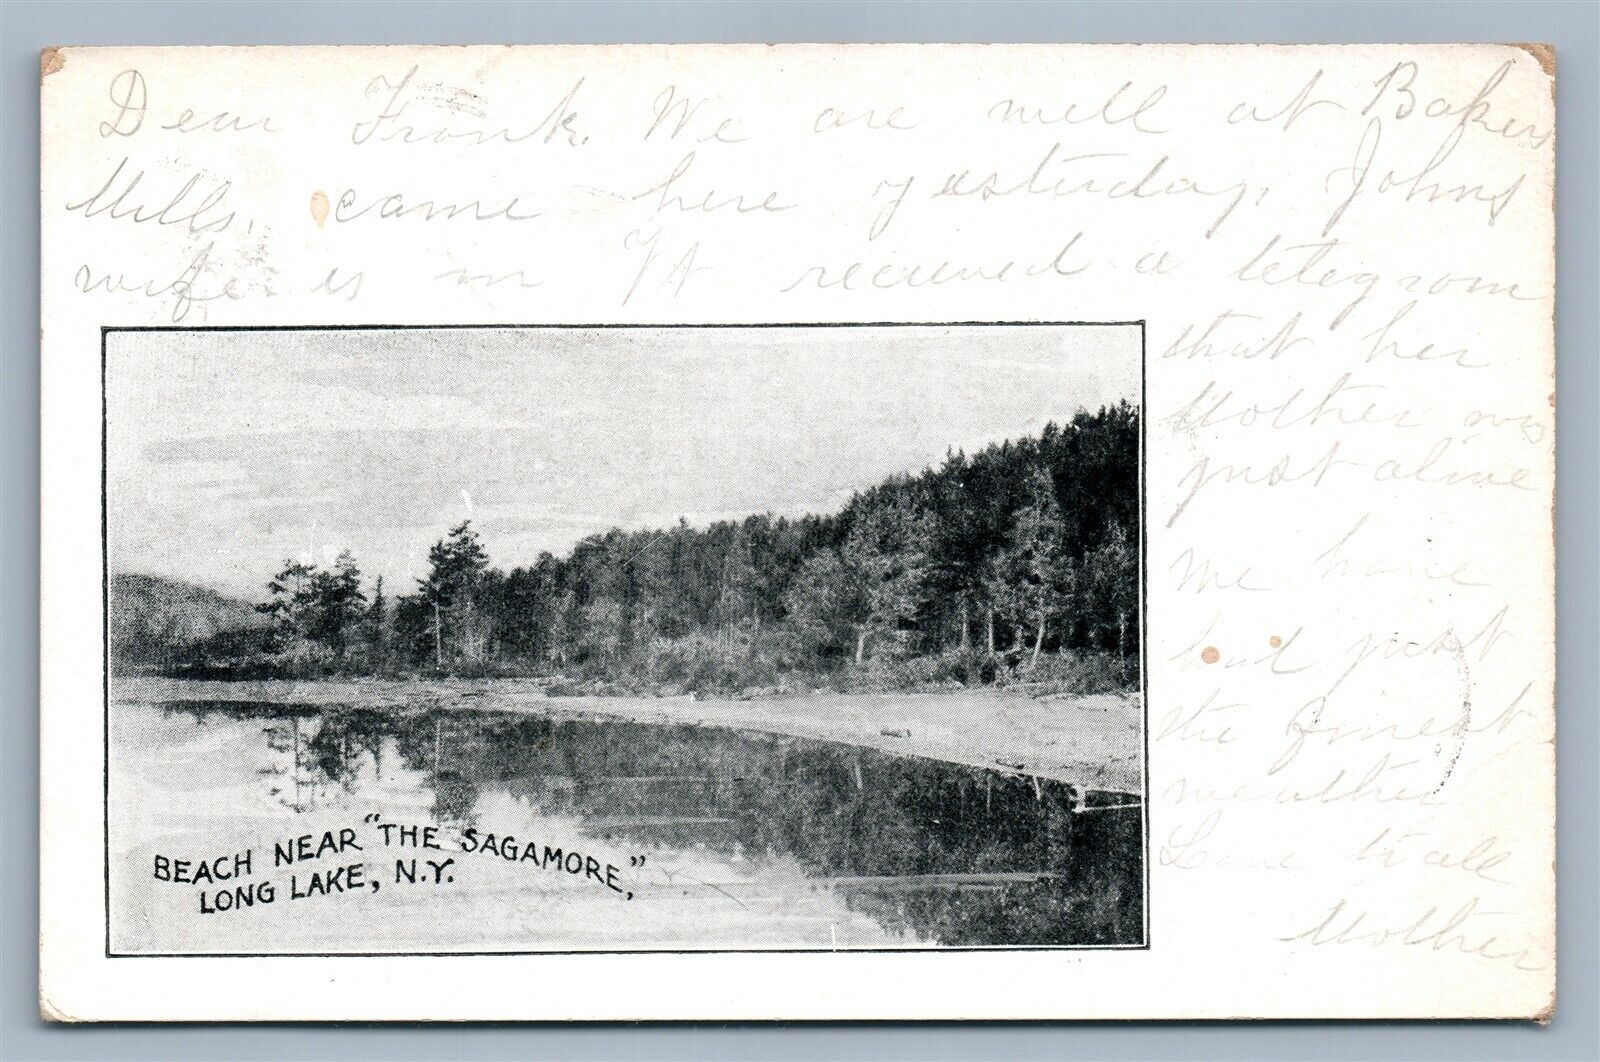 Dear Frank. We are well at Bakers
Mills, came here yesterday, Johns
wife is in Vt recieved a telegram
that her
Mother was
just alive
We have
had just
the finest
weather
Love to all
Mother
BEACH NEAR "THE SAGAMORE,"
LONG LAKE, N.Y.